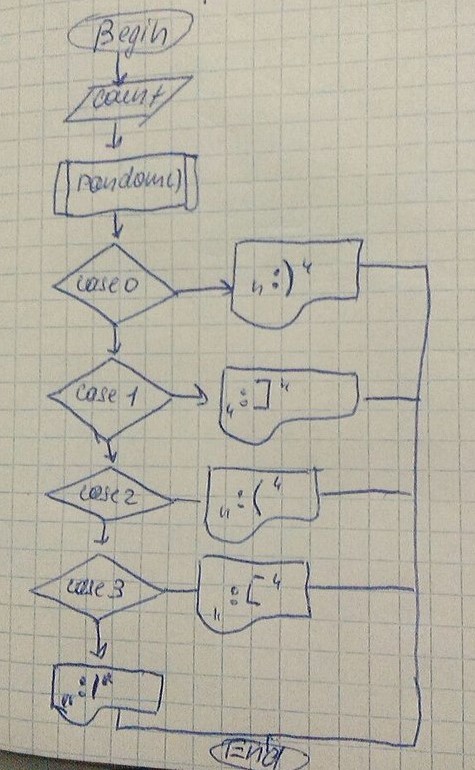 Begin
count
random()
case 0
":)"
case 1
":]"
case 2
":("
case 3
":["
":|"
End